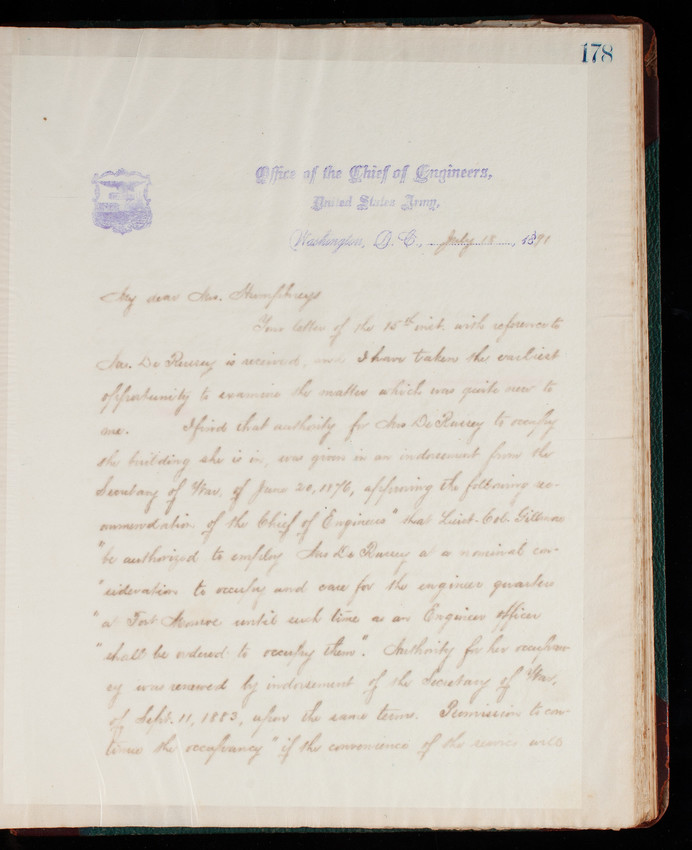 178
Office of the Chief of Engineers,
United States Army,
Washington, D. C., July 18, 1891
My dear Mrs. Humphreys
Your letter of the 15th inst. with reference to
Mrs. De Russey is received, and I have taken the earliest
opportunity to examine the matter which was quite new to
me. I find that authority for Mrs De Russey to occupy
the building she is in, was given in an indorsement from the
Secretary of War, of June 20, 1876, approving the following re-
commendation of the Chief of Engineers "that Lieut. Col. Gillmore
"be authorized to employ Mrs De Russey at a nominal con-
"sideration to occupy and care for the engineer quarters
"at Fort Monroe until such time as an Engineer officer
"shall be ordered to occupy them". Authority for her occupan-
cy was renewed by indorsement of the Secretary of War,
of Sept. 11, 1883, upon the same terms. Permission to con-
tinue the occupancy "if the convenience of the service will